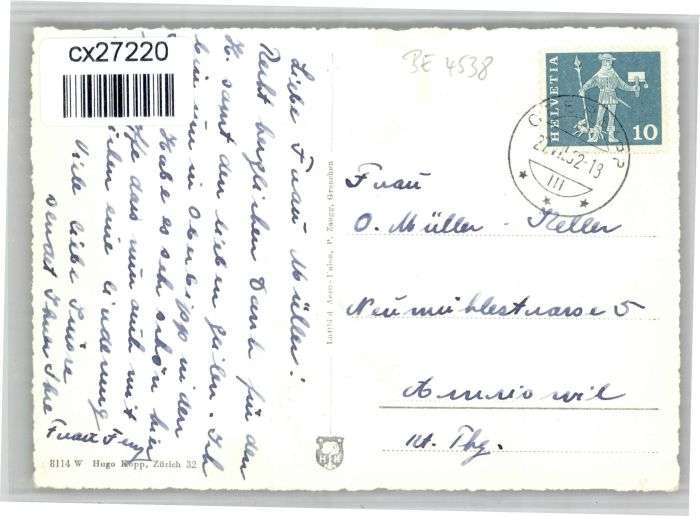 cx27220
BE 4538
HELVETIA
10
-13
III
Liebe Frau Müller!
Recht herzlichen Dank für den
K. samt den lieben Zeilen. Ich
bin nun in Oberbipp in den
Habe es sehr schön hier
das nun auch mit
eine Linderung
Viele liebe Grüsse
sendet Ihnen Ihre
Frau Jenny
Frau
O. Müller - Keller
Neumühlestrasse 5
Amriswil
Kt. Thg.
Luftbild Aero-Union, P. Zaugg, Grenchen
8114 W Hugo Kopp, Zürich 32